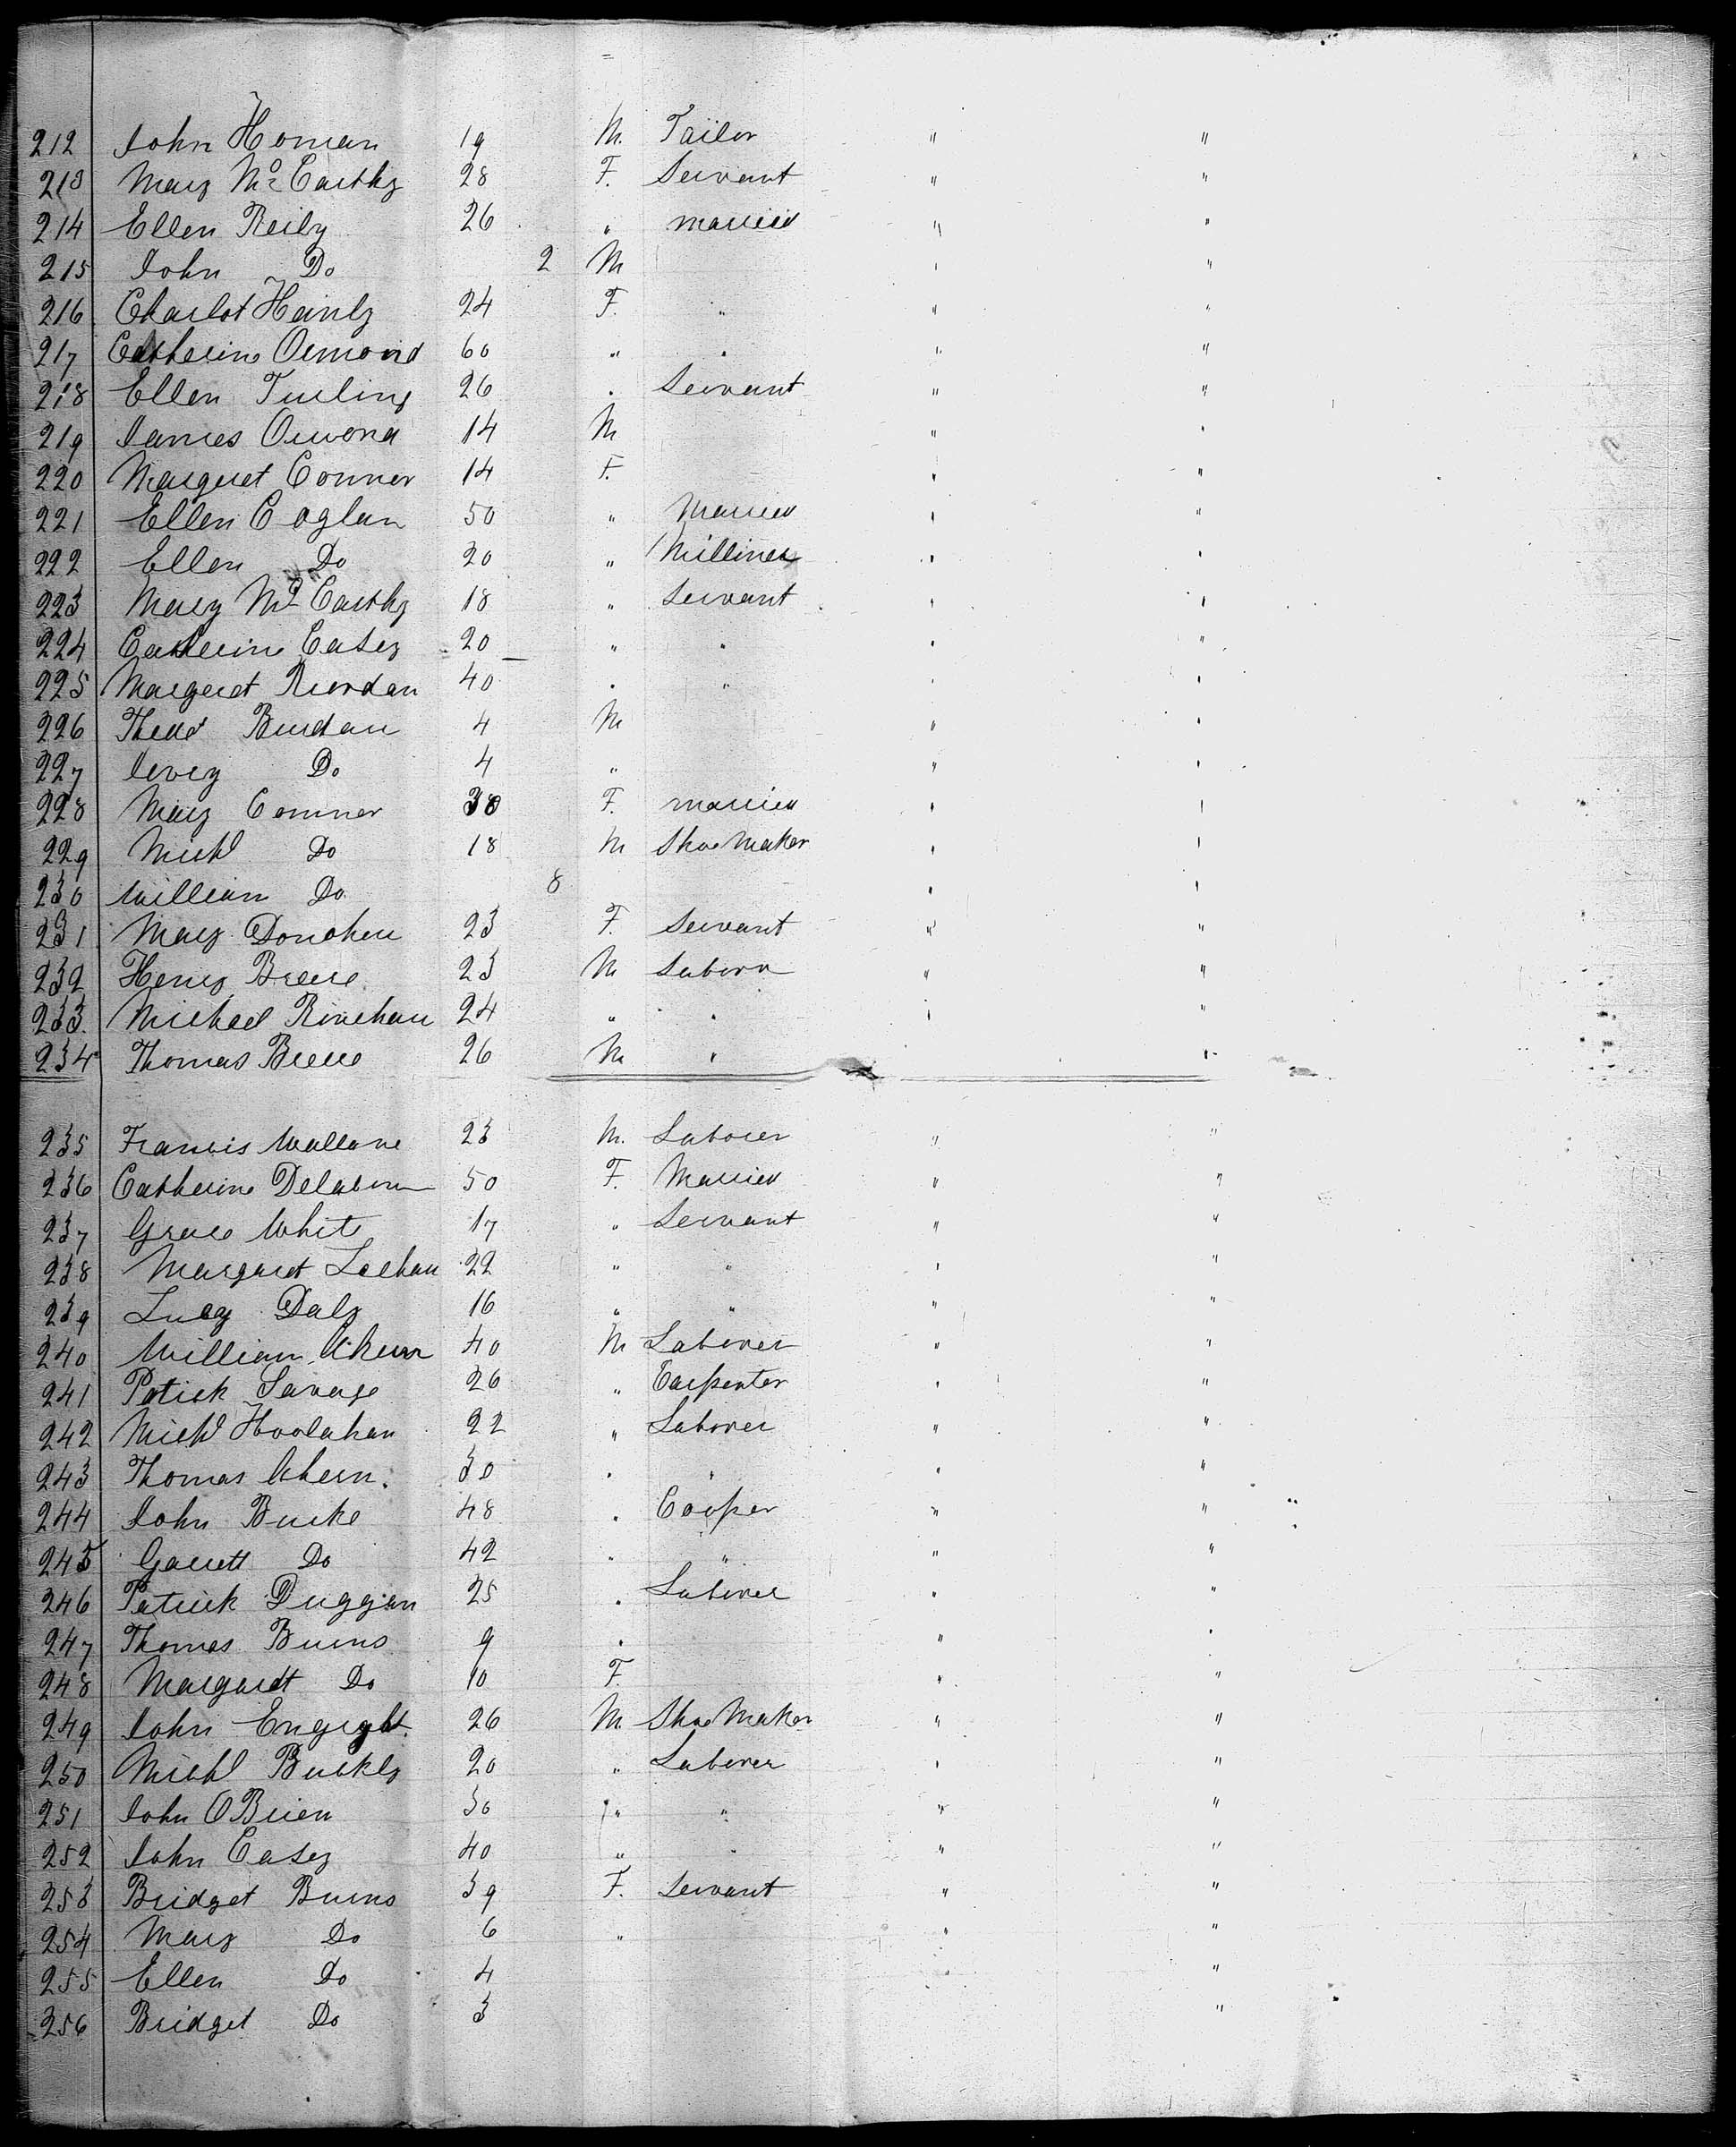 212 John Homan 19 M. Tailor " "
213 Mary Mc Carthy 28 F. Servant " "
214 Ellen Reily 26 " married " "
215 John Do 2 M " "
216 Charlot Hanly 24 F. " " "
217 Catherine Ormond 60 " " " "
218 Ellen 26 " Servant " "
219 James Ormond 14 M " "
220 Margret Conner 14 F. " "
221 Ellen Coglan 50 " Married " "
222 Ellen Do 20 " Milliner " "
223 Mary Mc Carthy 18 " Servant " "
224 Catherine Casey 20 " " " "
225 Margeret Riordan 40 " " " "
226 4 M " "
227 Do 4 " " "
228 Mary Conner 38 F. married " "
229 Michl Do 18 M Shoe Maker " "
230 William Do 8 " "
231 Mary Donoheu 23 F. Servant " "
232 Henry 23 M Labora " "
233 Michael Rinehan 24 " " " "
234 Thomas 26 M " " "
235 Francis Wallane 23 M. Laborer " "
236 Catherine 50 F. Married " "
237 Grace White 17 " Servant " "
238 Margaret Leehan 22 " " " "
239 Lucy Daly 16 " " " "
240 William Ahern 40 M Laborer " "
241 Patick Savage 26 " Carpenter " "
242 Michl Hoolahan 22 " Laborer " "
243 Thomas Ahern 30 " " " "
244 John Burke 48 " Cooper " "
245 Garrett Do 42 " " " "
246 Patrick Duggan 25 " Laborer " "
247 Thomas Burns 9 " " "
248 Margaret Do 10 F. " "
249 John 26 M Shoe Maker " "
250 Michl Buckly 20 " Laborer " "
251 John OBrien 30 " " " "
252 John Casey 40 " " " "
253 Bridget Burns 39 F. Servant " "
254 Mary Do 6 " " "
255 Ellen Do 4 "
256 Bridget Do 3 "